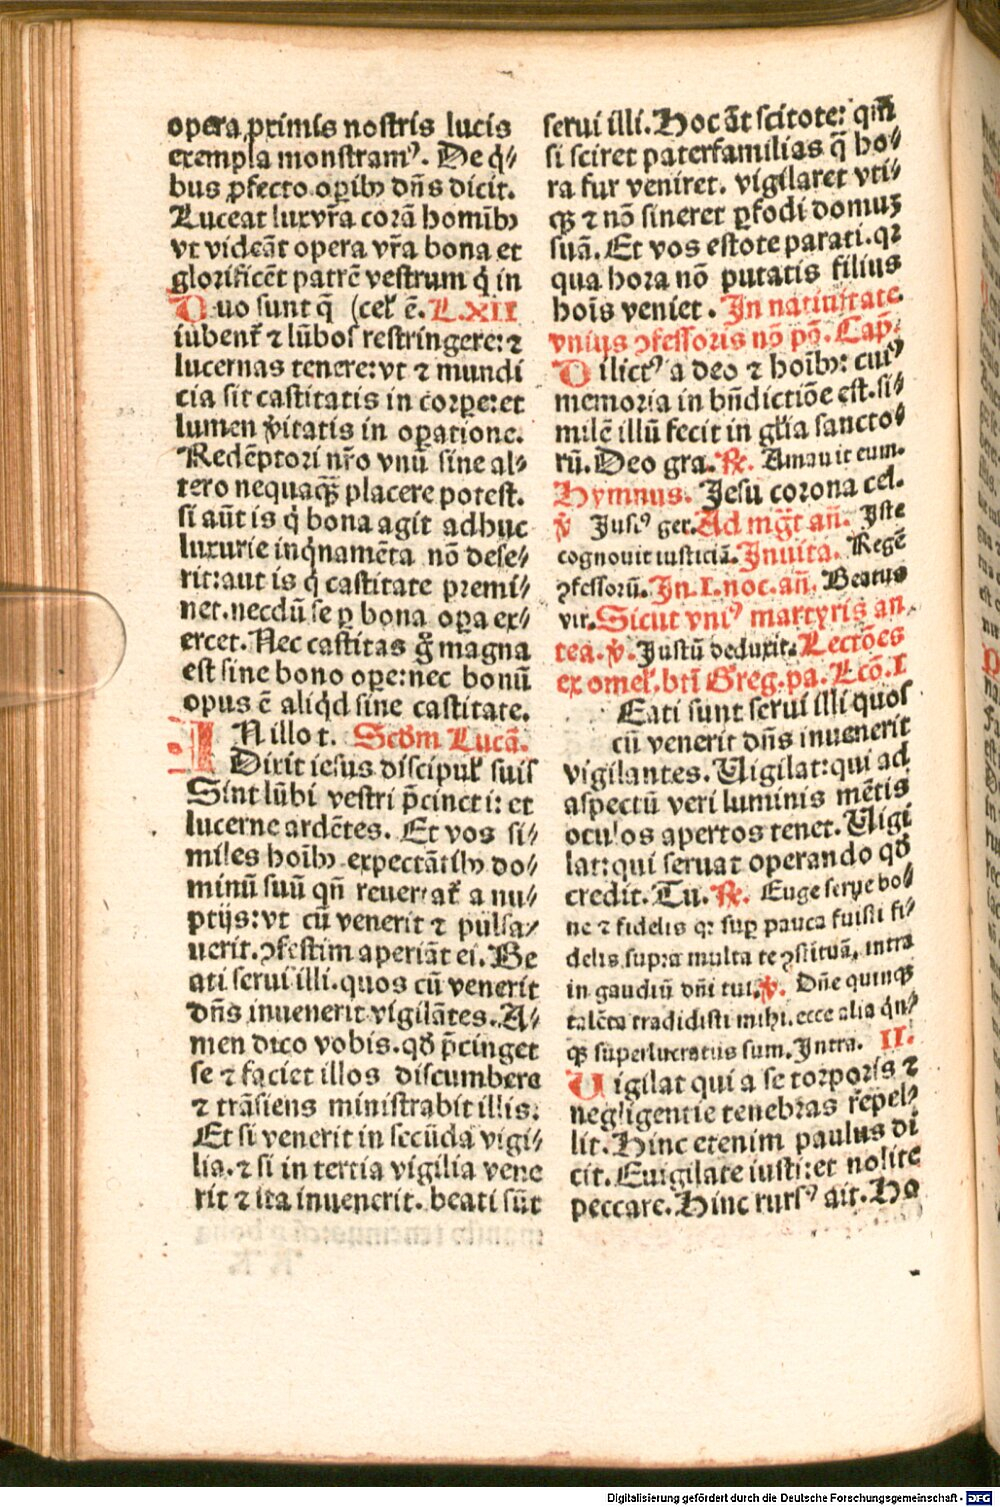 opera primis nostris lucis
exempla monstramꝰ. De q̇⸗
bus ꝓfecto oꝑibꝫ dn̄s dicit.
Luceat lux vr̄a corā homībꝫ
vt videāt opera vr̄a bona et
glorificēt patrē vestrum q̇ in
Duo sunt q̄ (celꝉ ē. L.XII
iubent᷑ ⁊ lūbos restringere: ⁊
lucernas tenere: vt ⁊ mundi
cia sit castitatis in corꝑe: et
lumen v̇itatis in oꝑatione.
Redēptori nr̄o vnū sine al⸗
tero nequaq̄ꝫ placere potest.
si aūt is q̇ bona agit adhuc
luxurie inq̇namēta nō dese⸗
rit: aut is q̇ castitate premi⸗
net. necdū se ꝑ bona oꝑa ex⸗
ercet. Nec castitas g̊ magna
est sine bono oꝑe: nec bonū
opus ē aliq̇d sine castitate.
IN illo t. Scd̄m Lucā.
Dixit iesus discipulꝉ suis
Sint lūbi vestri p̄cincti: et
lucerne ardētes. Et vos si⸗
miles hoībꝫ expectātibꝫ do⸗
minū suū qn̄ reuertat᷑ a nu⸗
ptijs: vt cū venerit ⁊ pulsa⸗
uerit. ꝯfestim aperiāt ei. Be
ati serui illi. quos cū venerit
dn̄s inuenerit vigilātes. A⸗
men dico vobis. qd̄ p̄cinget
se ⁊ faciet illos discumbere
⁊ trāsiens ministrabit illis.
Et si venerit in secūda vigi⸗
lia. ⁊ si in tertia vigilia vene
rit ⁊ ita inuenerit. beati sūt
serui illi. Hoc āt scitote: qm̄
si sciret paterfamilias q̄ ho⸗
ra fur veniret. vigilaret vti⸗
qꝫ ⁊ nō sineret ꝑfodi domuꝫ
suā. Et vos estote parati. qꝛ
qua hora nō putatis filius
hoīs veniet. In natiuitate
vnius ꝯfessoris nō pō. Cap̄.
Dilictꝰ a deo ⁊ hoībꝫ: cuiꝰ
memoria in bn̄dictiōe est. si⸗
milē illū fecit in gl̄ia sancto⸗
rū. Deo gra. ℟. Amauit eum.
Hymnus. Jesu corona cel.
℣ Jusꝰ ger. Ad mg̅t an̄. Iste
cognouit iusticiā. Inuita. Regē
ꝯfessorū. In. I. noc. an̄. Beatus
vir. Sicut vniꝰ martyris an
tea. ℣. Justū deduxit. Lectōes
ex omelꝉ. bt̄i Greg. pa. Lcō. I
Eati sunt serui illi quos
cū venerit dn̄s inuenerit
vigilantes. Uigilat: qui ad
aspectū veri luminis mētis
oculos apertos tenet. Uigi
lat: qui seruat operando qd̄
credit. Tu. ℟. Euge serue bo⸗
ne ⁊ fidelis qꝛ suꝑ pauca fuisti fi⸗
delis supra multa te ꝯstituā, intra
in gaudiū dn̄i tui. ℣. Dn̄e quinqꝫ
talēta tradidisti mihi. ecce alia q̇n⸗
qꝫ superlucratus sum. Intra. II.
Uigilat qui a se torporis ⁊
negligentie tenebras repel⸗
lit. Hinc etenim paulus di
cit. Euigilate iusti: et nolite
peccare. Hinc rursꝰ ait. Ho
Digitalisierung gefördert durch die Deutsche Forschungsgemeinschaft - DFG